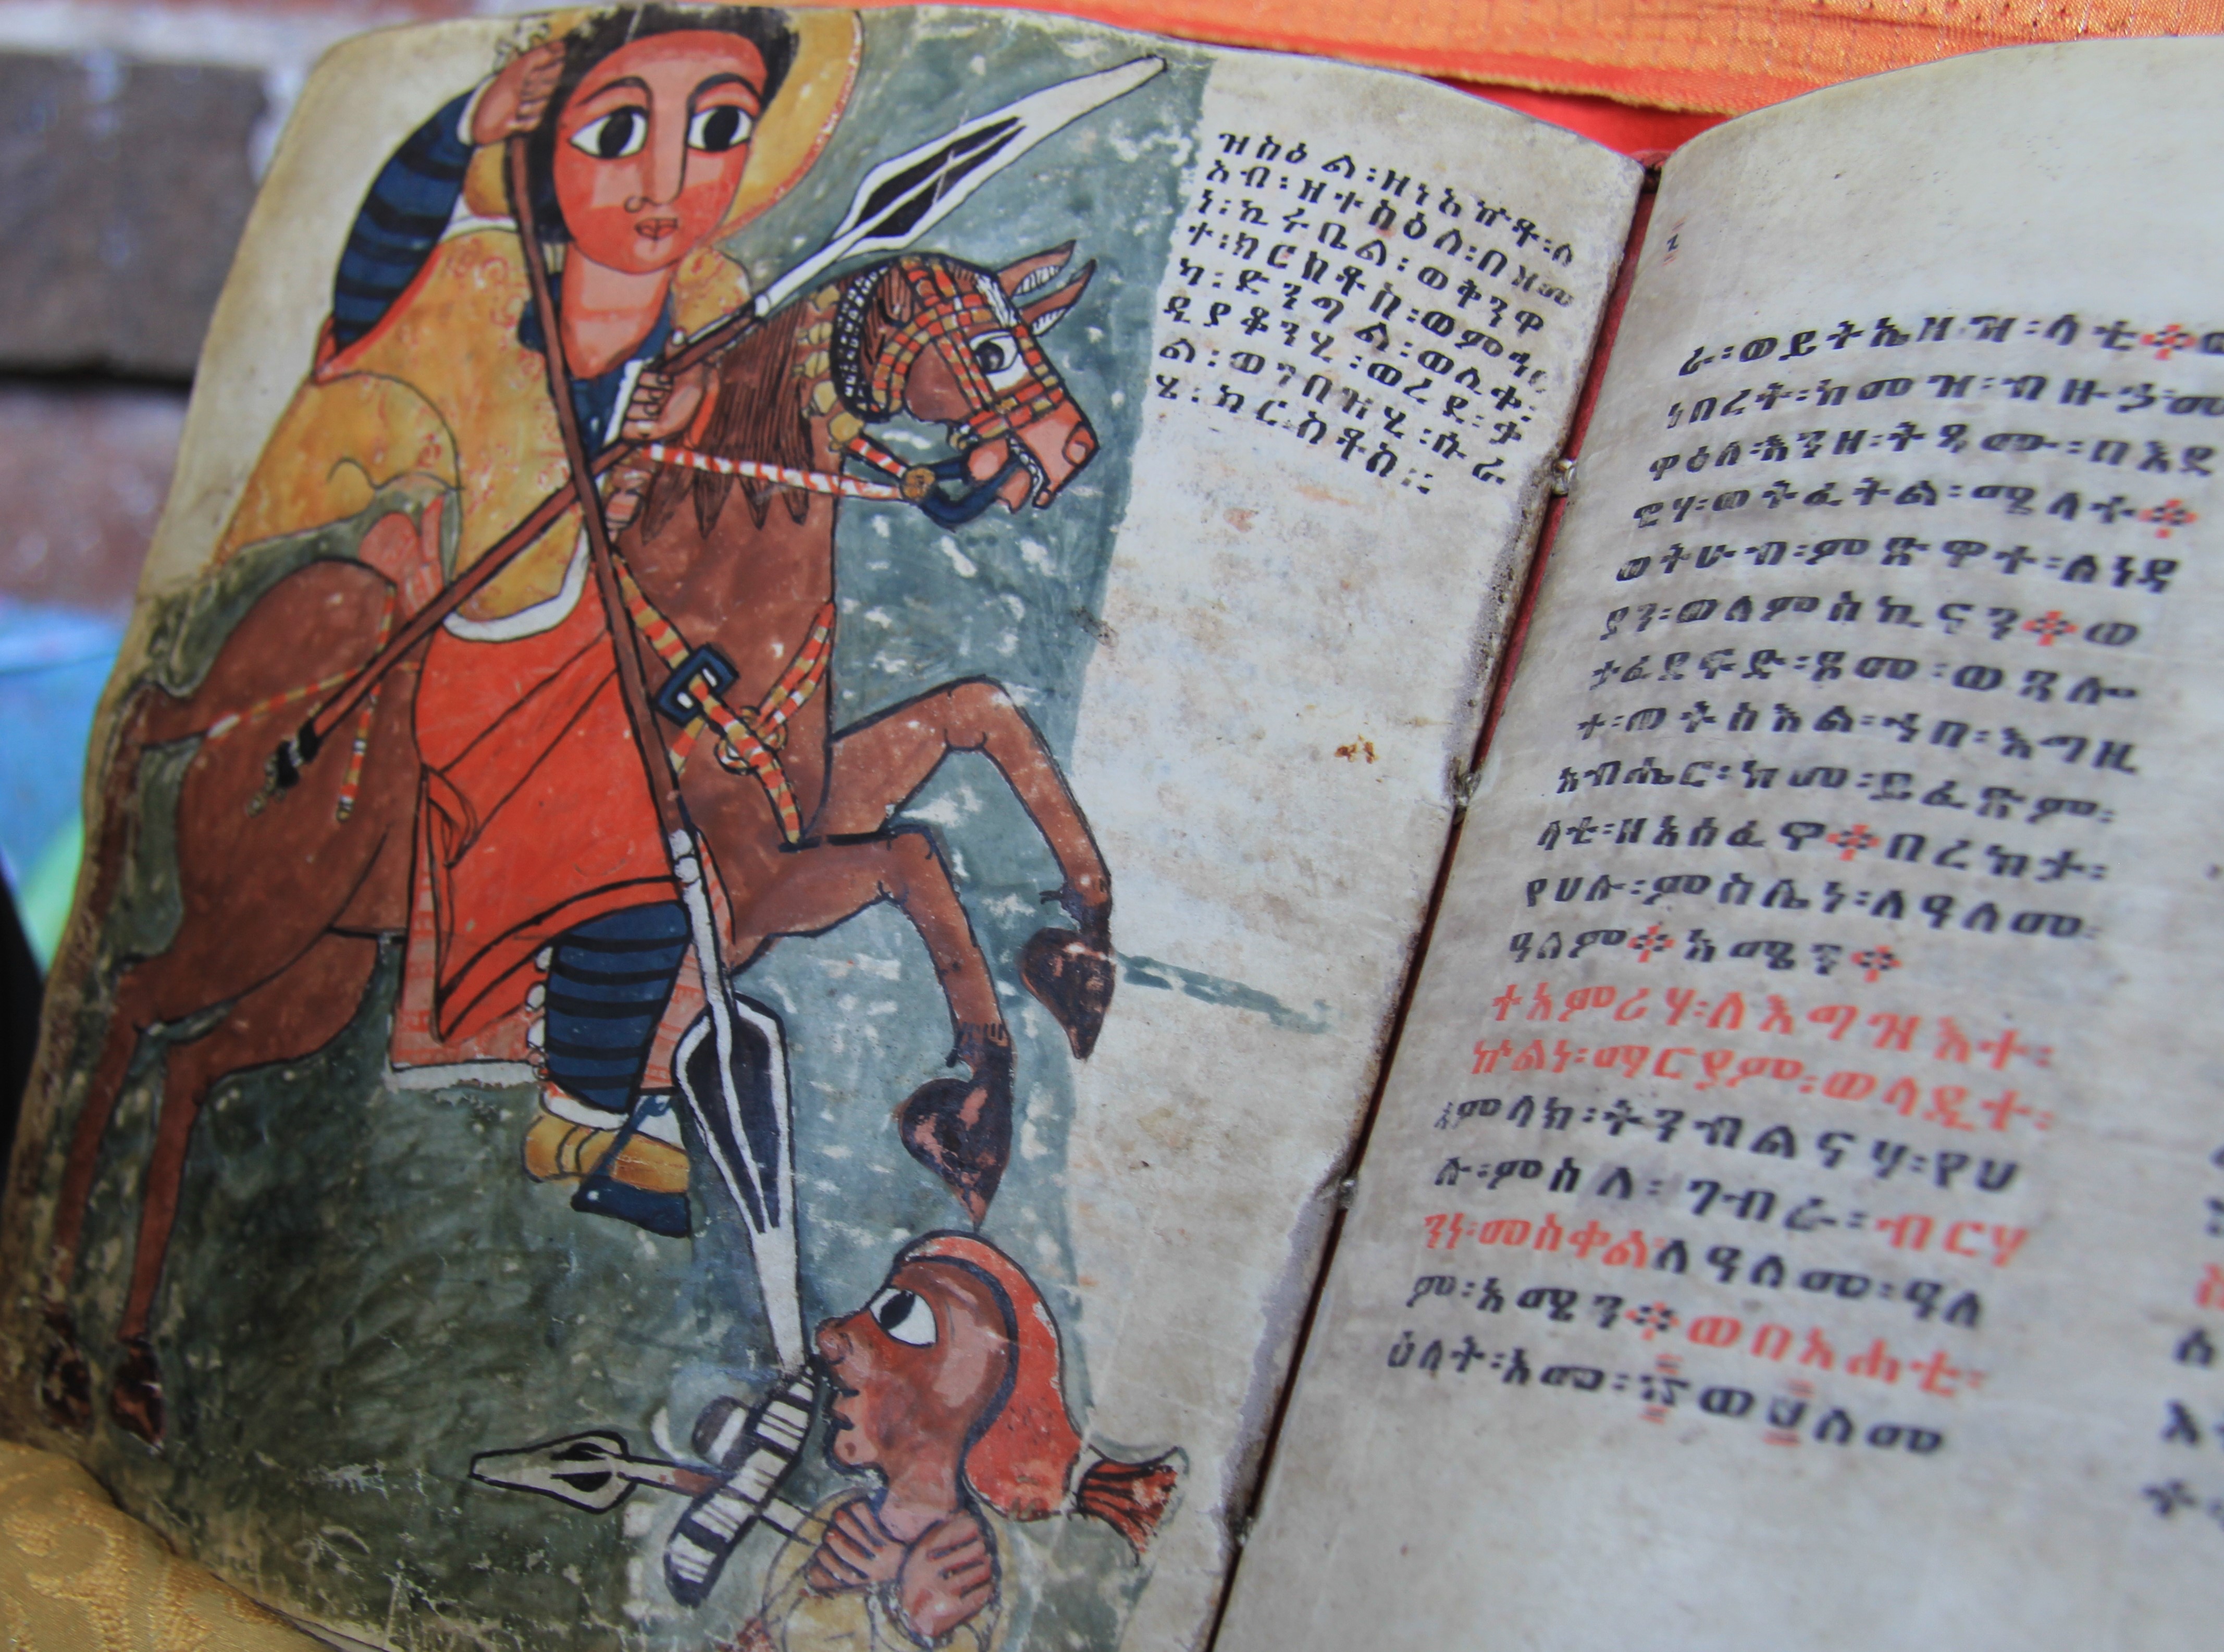 ዝስዕል፡ዘነአኵቶ፡ለ
አብ፡ዘተስዕለ፡በዝመ
ነ፡ኪሩቤል፡ወቅንዋ
ተ፡ክርስቶስ፡ወምን
ካ፡ድንግል፡ወሊቀ፡
ዲያቆንሂ፡ወረደ፡ታ
ል፡ወንበዝሂ፡ሱራ
ሂ፡ክርስቶስ፡፡
ራ፡ወይትኤዘዝ፡ላቲ፨
ነበረት፡ከመዝ፡ብዙኃ፡መ
ዋዕለ፡እንዘ፡ትጼሙ፡በእደ
ዊሃ፡ወትፈትል፡ሜላተ፨
ወትሁብ፡ምጽዋተ፡ለነዳ
ያን፡ወለምስኪናን፨ወ
ታፈደፍድ፡ጾመ፡ወጸሎ
ተ፡ወትስእል፡ኀበ፡እግዚ
አብሔር፡ከመ፡ይፈጽም፡
ላቲ፡ዘአሰፈዋ፨በረከታ፡
የሀሉ፡ምስሌነ፡ለዓለመ፡
ዓለም፨አሜን፨
ተአምሪሃ፡ለእግዝእተ፡
ኵልነ፡ማርያም፡ወላዲተ፡
አምላክ፡ትንብልናሃ፡የሀ
ሉ፡ምስለ፡ገብራ፡ብርሃ
ንነ፡መስቀልለዓለመ፡ዓለ
ም፡አሜን፨ወበአሐቲ፡
ዕለት፡አመ፡፲ወ፱ለመ